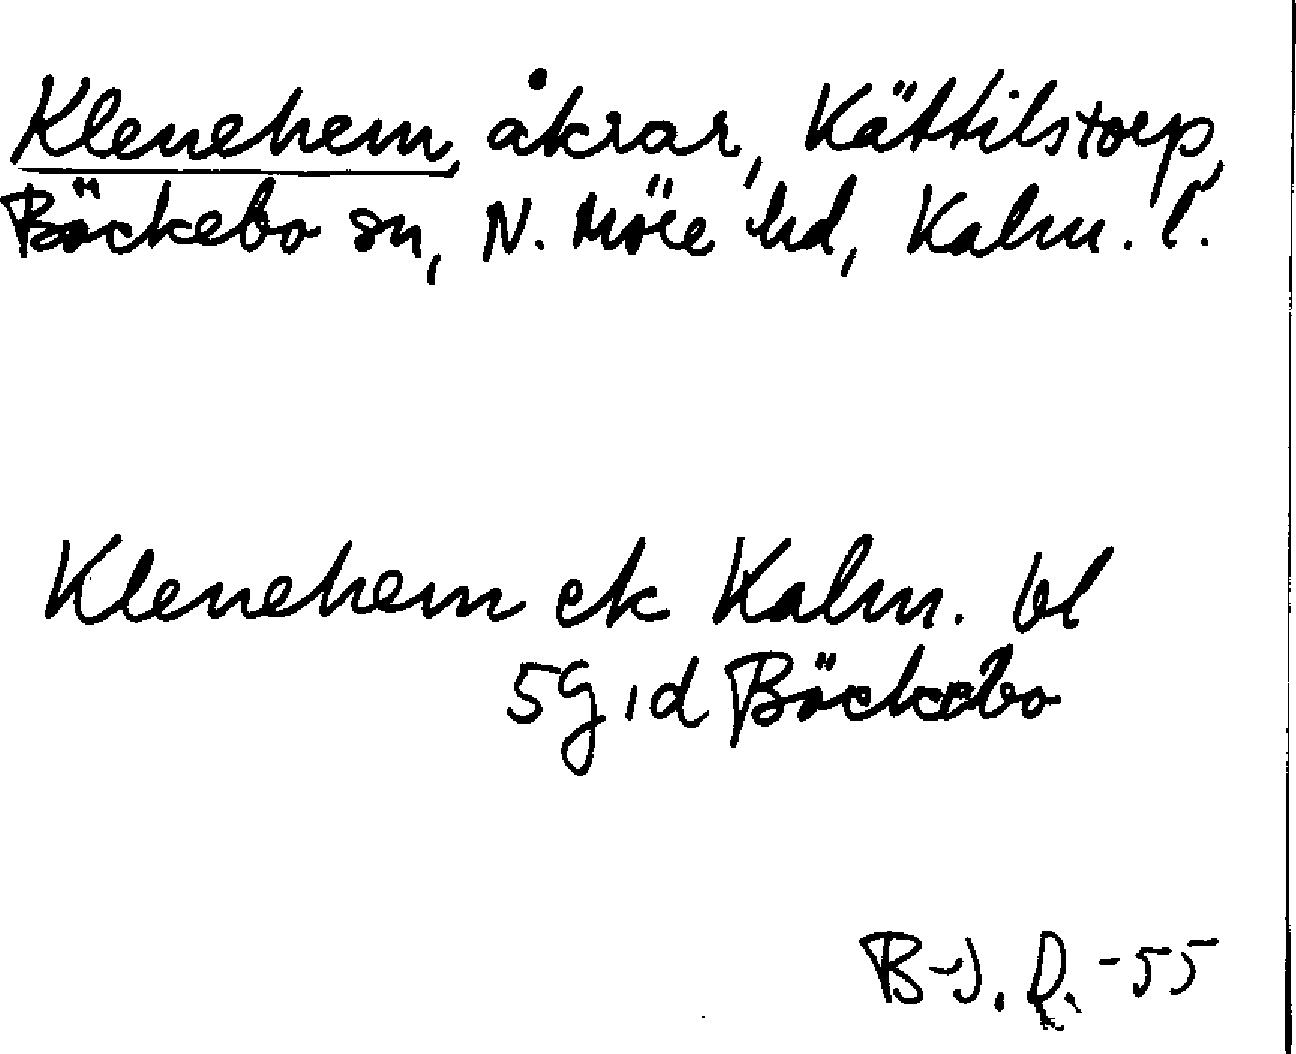 Klenehem, åkrar, Kättilstorp,
Böckebo sn, N. Möre hd, Kalm. l.
Klenehem ek Kalm. bl
5 g, d Böckebo
B-J. -55